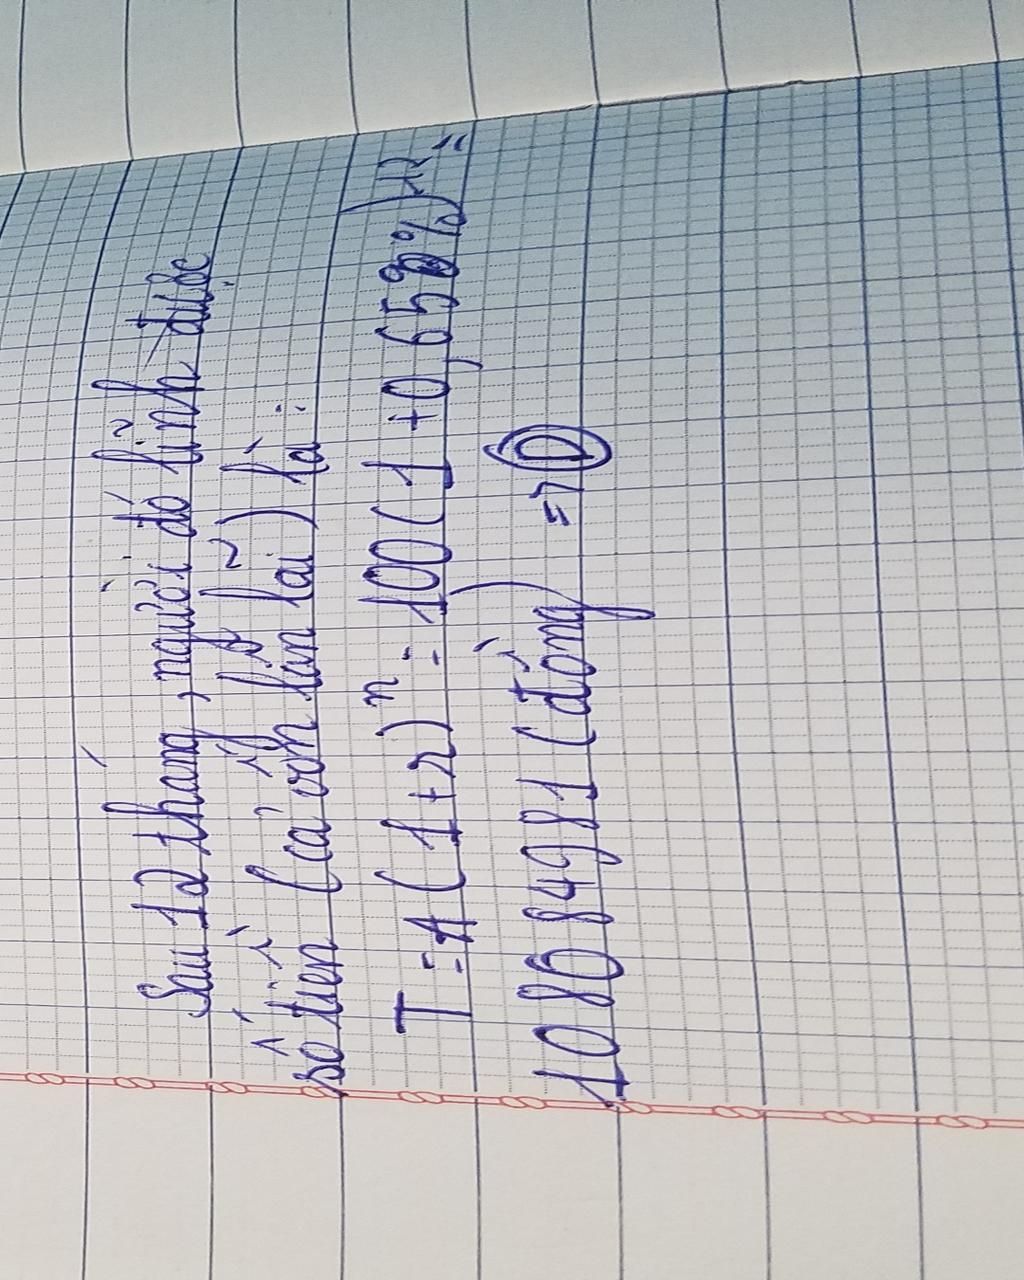 Sau 12 tháng, người đó lĩnh được
số tiền (cả vốn lẫn lãi) là:
T = A(1+r)ⁿ = 100(1+0,65%)¹² =
108084981 (đồng) => D